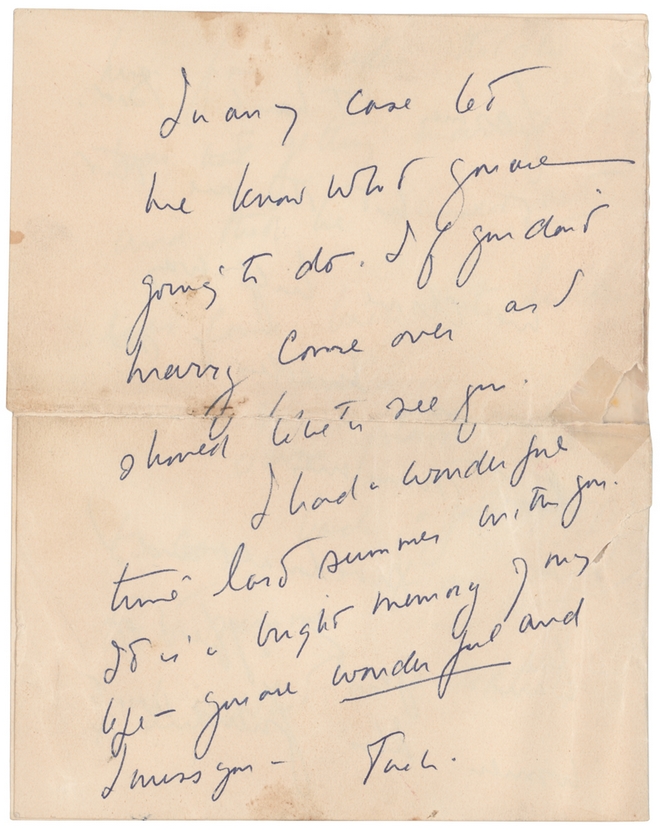 In any case let
me know what you are
going to do. If you don't
marry come over as I
should like to see you.
I had a wonderful
time last summer with you.
It is a bright memory of my
life – you are wonderful and
I miss you –    Jack.